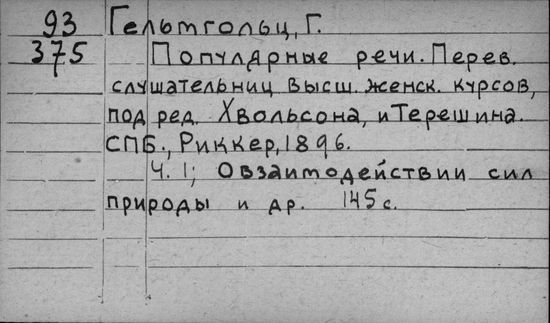 93 Гельмгольц, Г.
375 Популярные речи. Перев.
слушательниц Высш. женск. курсов,
под ред. Хвольсона, и Терешина.
СПБ., Риккер, 1896.
Ч. 1; О взаимодействии сил
природы и др. 145 с.